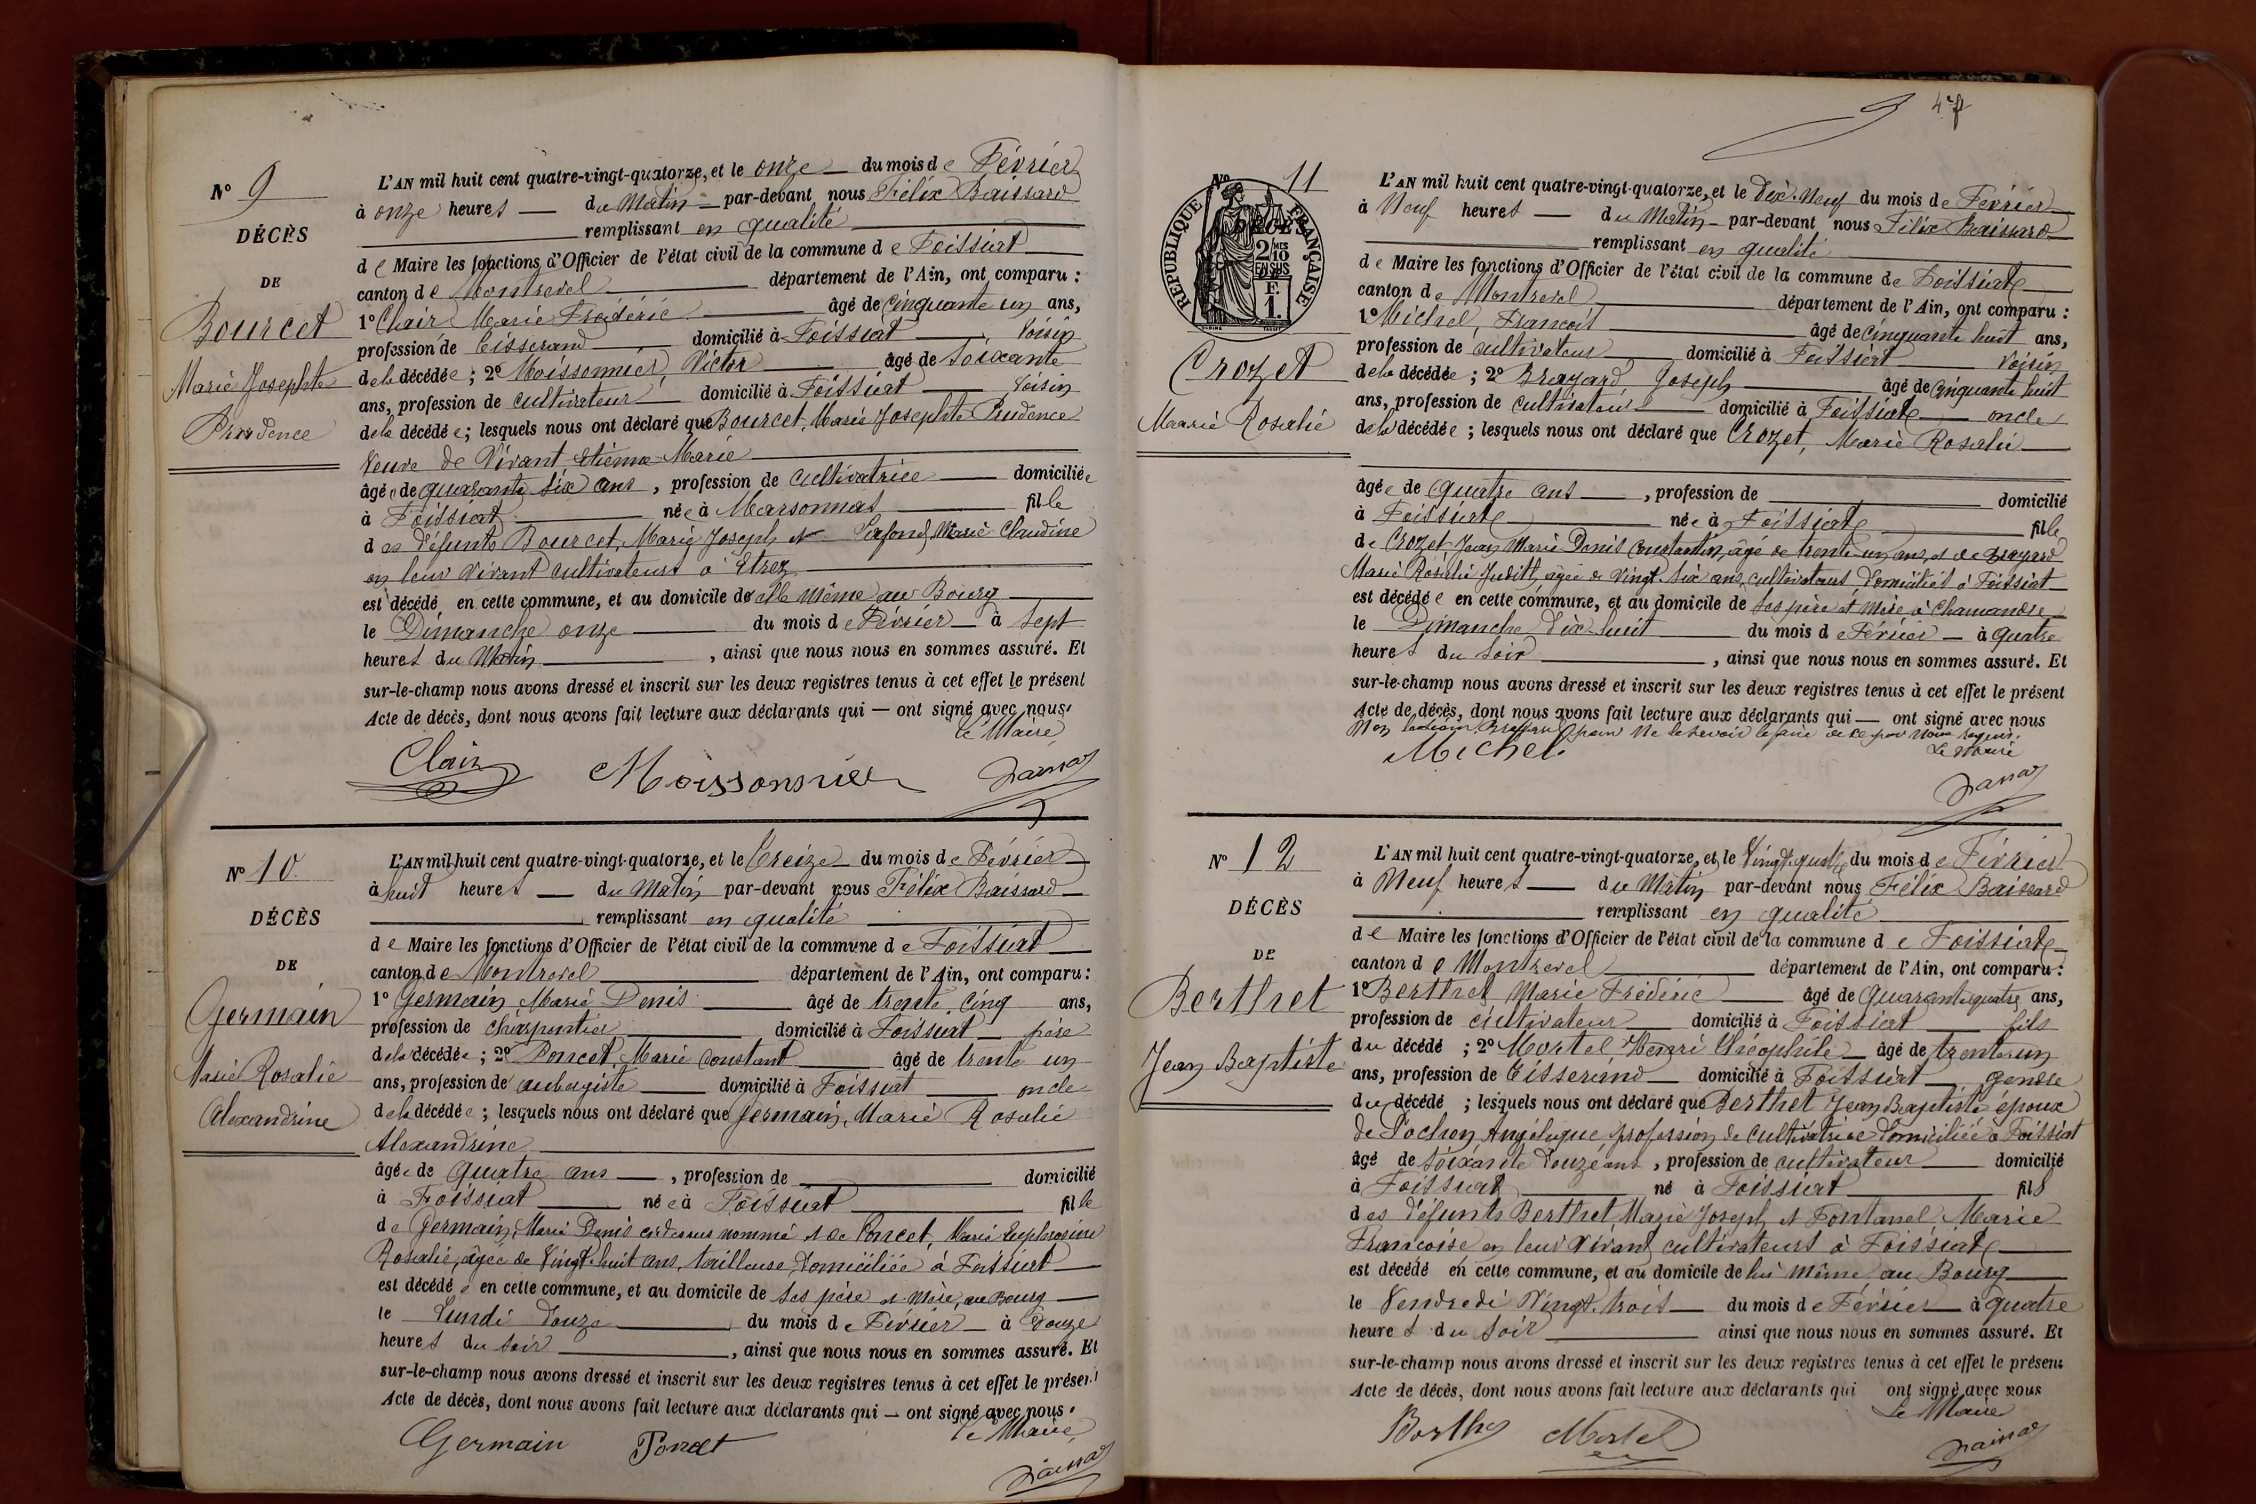 N° 9
DÉCÈS
DE
Bourcet
Marie Josephte
Prudence
L'AN mil huit cent quatre-vingt-quatorze, et le onze du mois de Février
à onze heures du Matin par-devant nous Félix Baissard
remplissant en qualité
de Maire les fonctions d'Officier de l'état civil de la commune de Foissiat
canton de Montrevel département de l'Ain, ont comparu :
1° Clair Marie Frédéric âgé de Cinquante un ans,
profession de Tisserand domicilié à Foissiat Voisin
de la décédée ; 2° Moissonnier, Victor âgé de Soixante
ans, profession de cultivateur domicilié à Foissiat Voisin
de la décédée ; lesquels nous ont déclaré que Bourcet, Marie Josephte Prudence
Veuve de Vivant Etienne Marie
âgée de quarante six ans, profession de cultivatrice domiciliée
à Foissiat née à Marsonnas fille
des défunts Bourcet, Marie Joseph et Lafond, Marie Claudine
en leur vivant cultivateurs à Etrez
est décédé en cette commune, et au domicile d'elle même au Bourg
le Dimanche onze du mois de Février à Sept
heures du Matin, ainsi que nous nous en sommes assuré. Et
sur-le-champ nous avons dressé et inscrit sur les deux registres tenus à cet effet le présent
Acte de décès, dont nous avons fait lecture aux déclarants qui — ont signé avec nous.
Le Maire
Clair Moissonnier
N° 10
DÉCÈS
DE
Germain
Marie Rosalie
Alexandrine
L'AN mil huit cent quatre-vingt-quatorze, et le Treize du mois de Février
à huit heures du Matin par-devant nous Félix Baissard
remplissant en qualité
de Maire les fonctions d'Officier de l'état civil de la commune de Foissiat
canton de Montrevel département de l'Ain, ont comparu :
1° Germain Marie Denis âgé de trente cinq ans,
profession de charpentier domicilié à Foissiat père
de la décédée ; 2° Poncet, Marie Constant âgé de trente un
ans, profession de aubergiste domicilié à Foissiat oncle
de la décédée ; lesquels nous ont déclaré que Germain, Marie Rosalie
Alexandrine
âgée de quatre ans, profession de domicilié
à Foissiat née à Foissiat fille
de Germain, Marie Denis ci-dessus nommé et de Poncet, Marie Euphrosine
Rosalie, âgée de Vingt huit ans, tailleuse, domiciliée à Foissiat
est décédée en cette commune, et au domicile de Ses père et mère, au Bourg
le Lundi douze du mois de Février à Douze
heures du soir, ainsi que nous nous en sommes assuré. Et
sur-le-champ nous avons dressé et inscrit sur les deux registres tenus à cet effet le présent
Acte de décès, dont nous avons fait lecture aux déclarants qui — ont signé avec nous.
Le Maire
Germain Poncet
N° 11
RÉPUBLIQUE FRANÇAISE
2/10
EN SUS
F.
1.
Crozet
Marie Rosalie
L'AN mil huit cent quatre-vingt-quatorze, et le Dix Neuf du mois de Février
à Neuf heures du Matin par-devant nous Félix Baissard
remplissant en qualité
de Maire les fonctions d'Officier de l'état civil de la commune de Foissiat
canton de Montrevel département de l'Ain, ont comparu :
1° Michel, François âgé de Cinquante huit ans,
profession de cultivateur domicilié à Foissiat Voisin
de la décédée ; 2° Brayard, Joseph âgé de Cinquante huit
ans, profession de cultivateur domicilié à Foissiat oncle
de la décédée ; lesquels nous ont déclaré que Crozet, Marie Rosalie
âgée de quatre ans, profession de domicilié
à Foissiat née à Foissiat fille
de Crozet Jean Marie Denis Constantin, âgé de trente un ans, et de Brayard
Marie Rosalie Judith, âgée de Vingt Six ans, cultivateurs domiciliés à Foissiat
est décédée en cette commune, et au domicile de Ses père et mère à Chamandre
le Dimanche Dix huit du mois de Février à quatre
heures du Soir, ainsi que nous nous en sommes assuré. Et
sur-le-champ nous avons dressé et inscrit sur les deux registres tenus à cet effet le présent
Acte de décès, dont nous avons fait lecture aux déclarants qui — ont signé avec nous
pour ne le savoir faire de ce par nous requis.
Le Maire
Michel
N° 12
DÉCÈS
DE
Berthet
Jean Baptiste
L'AN mil huit cent quatre-vingt-quatorze, et le Vingt quatre du mois de Février
à Neuf heures du Matin par-devant nous Félix Baissard
remplissant en qualité
de Maire les fonctions d'Officier de l'état civil de la commune de Foissiat
canton de Montrevel département de l'Ain, ont comparu :
1° Berthet Marie Frédéric âgé de Quarante quatre ans,
profession de cultivateur domicilié à Foissiat fils
du décédé ; 2° Mortel Henri Théophile âgé de trente un
ans, profession de Tisserand domicilié à Foissiat gendre
du décédé ; lesquels nous ont déclaré que Berthet Jean Baptiste époux
de Pochon Angélique profession de cultivatrice domiciliée à Foissiat
âgé de soixante douze ans, profession de cultivateur domicilié
à Foissiat né à Foissiat fils
des défunts Berthet Marie Joseph et Fontanel Marie
Françoise en leur vivant cultivateurs à Foissiat
est décédé en cette commune, et au domicile de lui même au Bourg
le Vendredi Vingt trois du mois de Février à quatre
heures du Soir ainsi que nous nous en sommes assuré. Et
sur-le-champ nous avons dressé et inscrit sur les deux registres tenus à cet effet le présent
Acte de décès, dont nous avons fait lecture aux déclarants qui ont signé avec nous
Le Maire
Berthet Mortel